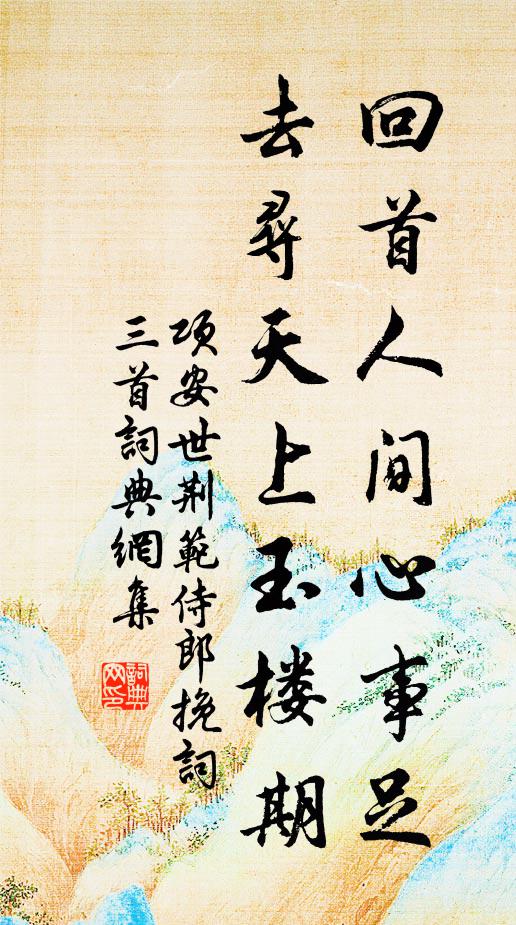 回首人间心事足
去尋天上玉楼期
项安世荆範侍郎挽詞
三首詞典網集
詞典网印